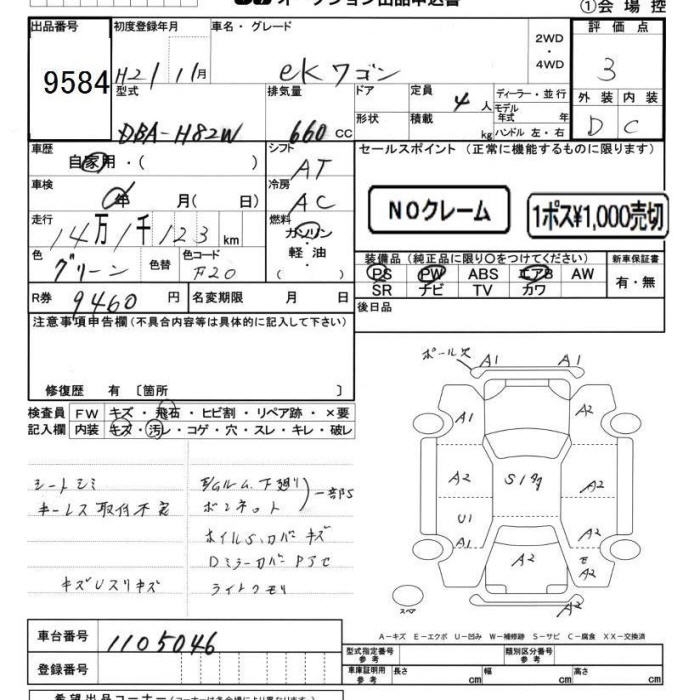 オークション出品申込書
①会場控
出品番号 初度登録年月 車名・グレード 2WD ・ 4WD 評価点
9584 H21 11月 eKワゴン 3
型式 排気量 ドア 定員 4人 ディーラー・並行 外装 内装
DBA-H82W 660 CC 形状 積載 kg モデル年式 年 ハンドル 左・右 D C
車歴 自家用・( ) シフト AT セールスポイント (正常に機能するものに限ります)
車検 年 月( 日) 冷房 AC NOクレーム 1ポス¥1,000売切
走行 14万1千123km 燃料 ガソリン
軽・油
( )
色 グリーン 色替 色コード F20
装備品 (純正品に限り○をつけてください) 新車保証書
PS PW ABS エアB AW 有・無
SR ナビ TV カワ
R券 9460円 名変期限 月 日
後日品
注意事項申告欄 (不具合内容等は具体的に記入して下さい)
修復歴 有 〔箇所 〕
検査員 FW キズ・飛石・ヒビ割・リペア跡・×要
記入欄 内装 キズ・汚レ・コゲ・穴・スレ・キレ・破レ
シートシミ
キーレス取付不良
キズUスリキズ
E/Gルム、下廻り
ボンネット
一部S
ホイルS、カバーキズ
DミラーカバーPラセ
ライトクモリ
ポール欠 A1 A1
A1 A2
A2 S1タタ A2
U1 A2
A1 A2 E
A2
A2
スペア
A-キズ E-エクボ U-凹み W-補修跡 S-サビ C-腐食 XX-交換済
車台番号 1105046
登録番号
型式指定番号 参考 類別区分番号 参考
車庫証明用 参考 長さ cm 幅 cm 高さ cm
希望出品コーナー (コーナーは各会場により異なります)